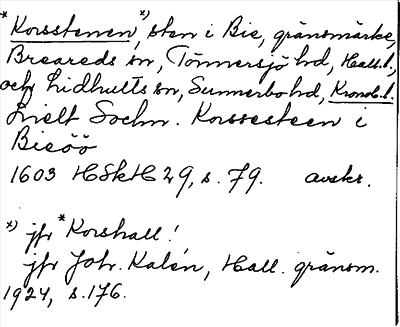 *Korsstenen,*) sten i Bie, gränsmärke,
Breareds sn, Tönnersjö hd, Hall.l.,
och Lidhults sn, Sunnerbo hd, Kronob.l.
Lielt Sochn. Korssesteen i
Bieöö
1603 HSkH 29, s. 79. avskr.
*) jfr *Korshall!
jfr Joh. Kalén, Hall. gränsm.
1924, s. 176.